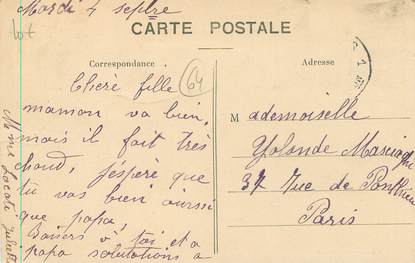 Mardi 4 septre
lot
CARTE POSTALE
Correspondance
Adresse
64
Chere fille
maman va bien,
mais il fait très
chaud, j'éspère que
tu vas bien aussi
que papa
Baisers à toi et a
papa salutations a
Mme
Mademoiselle
Yolande
37 Rue de Ponthieu
Paris